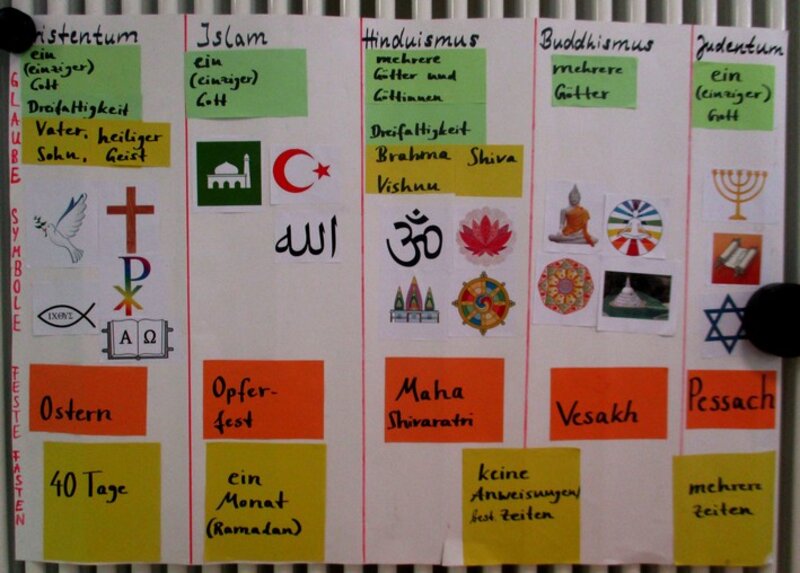 ristentum
Islam
Hinduismus
Buddhismus
Judentum
GLAUBE
ein
(einziger)
Gott
Dreifaltigkeit
Vater, heiliger
Sohn, Geist
ein
(einziger)
Gott
mehrere
Götter und
Göttinnen
Dreifaltigkeit
Brahma Shiva
Vishnu
mehrere
Götter
ein
(einziger)
Gott
SYMBOLE
ΙΧΘΥΣ
Α Ω
الله
ॐ
FESTE
Ostern
Opfer-
fest
Maha
Shivaratri
Vesakh
Pessach
FASTEN
40 Tage
ein
Monat
(Ramadan)
keine
Anweisungen/
best. Zeiten
mehrere
Zeiten